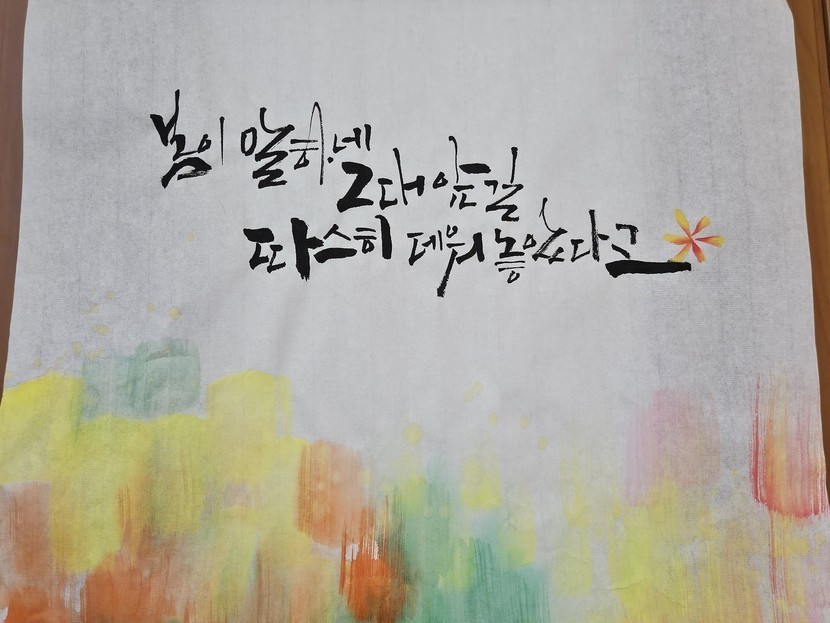 봄이 말하네
그대 앞길
따스히 데워놓았다고